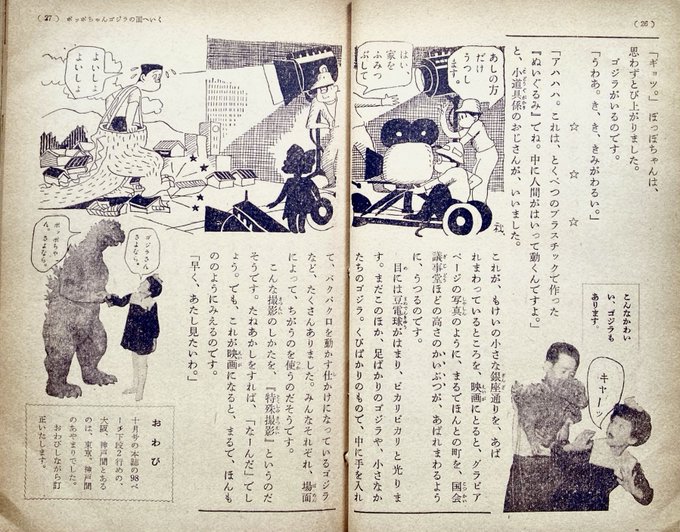 (26)
「ギョッ。」ぽっぽちゃんは、
思わずとび上がりました。
ゴジラがいるのです。
「うわあ。き、き、きみがわるい。」
☆ ☆ ☆
「アハハハ。これは、とくべつのプラスチックで作った
『ぬいぐるみ』でね。中に人間がはいって動くんですよ。」
と、小道具係のおじさんが、いいました。
こんなかわい
い、ゴジラも
あります。
キャーッ
これが、もけいの小さな銀座通りを、あば
れまわっているところを、映画にとると、グラビア
ページの写真のように、まるでほんとの町を、国会
議事堂ほどの高さのかいぶつが、あばれまわるよう
に、うつるのです。
目には豆電球がはまり、ピカリピカリと光りま
す。まだこのほか、足ばかりのゴジラや、小さなか
たちのゴジラ。くびばかりのもので、中に手を入れ
あしの方
だけ
うつし
ます。
はい
家を
ふみつ
ぶして
(27) ポッポちゃんゴジラの国へいく
よいしょ
よいしょ
て、パクパクロを動かす仕かけになっているゴジラ
など、たくさんありました。みんなそれぞれ、場面
によって、ちがうのを使うのだそうです。
こんな撮影のしかたを、『特殊撮影』というのだ
そうです。たねあかしをすれば、「なーんだ」でし
ょう。でも、これが映画になると、まるで、ほんも
ののようにみえるのです。
「早く、あたし見たいわ。」
ゴジラさん
さよなら。
ポッポちゃ
ん、さよなら。
おわび
十月号の本誌の98ペ
ーチ下段2行めの、
大阪、神戸間とある
のは、東京、神戸間
のあやまりでした。
おわびしながら訂
正いたします。